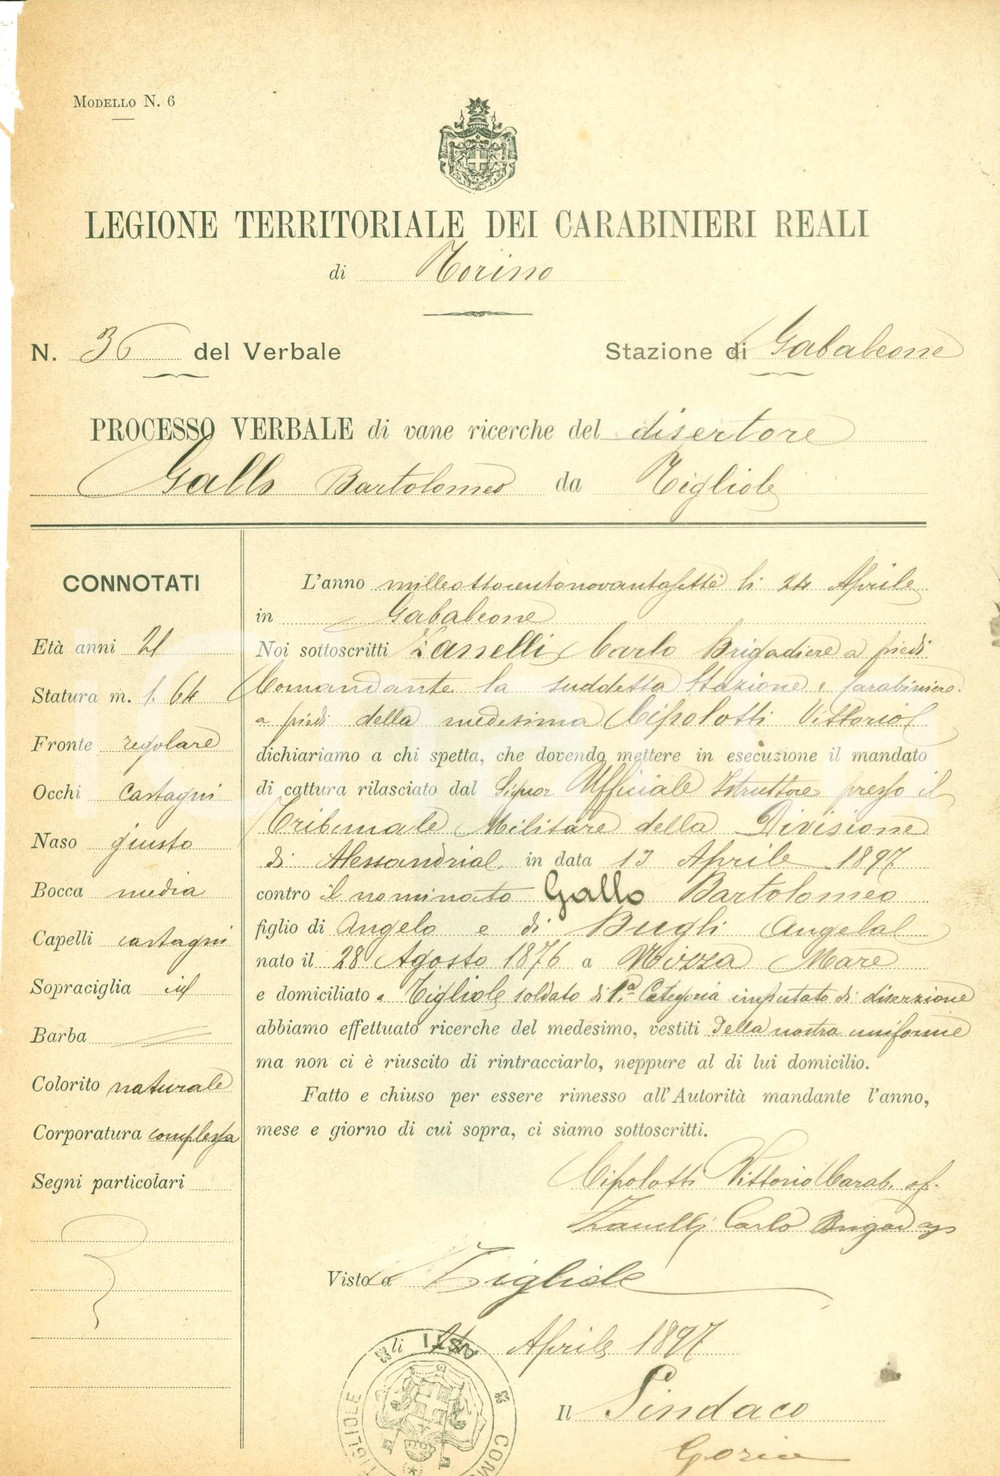 MODELLO N. 6
LEGIONE TERRITORIALE DEI CARABINIERI REALI
di Torino
N. 36 del Verbale
Stazione di Gabaleone
PROCESSO VERBALE di vane ricerche del disertore
Gallo Bartolomeo da Tigliole
CONNOTATI
Età anni 21
Statura m. 1.64
Fronte regolare
Occhi castagni
Naso giusto
Bocca media
Capelli castagni
Sopraciglia id
Barba
Colorito naturale
Corporatura complessa
Segni particolari
L'anno milleottocentonovantasette li 24 Aprile
in Gabaleone
Noi sottoscritti Zanelli Carlo Brigadiere a piedi
Comandante la suddetta Stazione e carabiniere
a piedi della medesima Cipolotti Vittorio
dichiariamo a chi spetta, che dovendo mettere in esecuzione il mandato
di cattura rilasciato dal Signor Ufficiale Istruttore presso il
Tribunale Militare della Divisione
di Alessandria in data 13 Aprile 1897
contro il nominato Gallo Bartolomeo
figlio di Angelo e di Bugli Angela
nato il 28 Agosto 1876 a Mozza Mare
e domiciliato a Tigliole soldato di 1.a Categoria imputato di diserzione
abbiamo effettuato ricerche del medesimo, vestiti della nostra uniforme
ma non ci è riuscito di rintracciarlo, neppure al di lui domicilio.
Fatto e chiuso per essere rimesso all'Autorità mandante l'anno,
mese e giorno di cui sopra, ci siamo sottoscritti.
Cipolotti Vittorio Carab. af.
Zanelli Carlo Brigad
Visto a Tigliole
li 24 Aprile 1897
Il Sindaco
Goria
TIGLIOLE ASTI COM